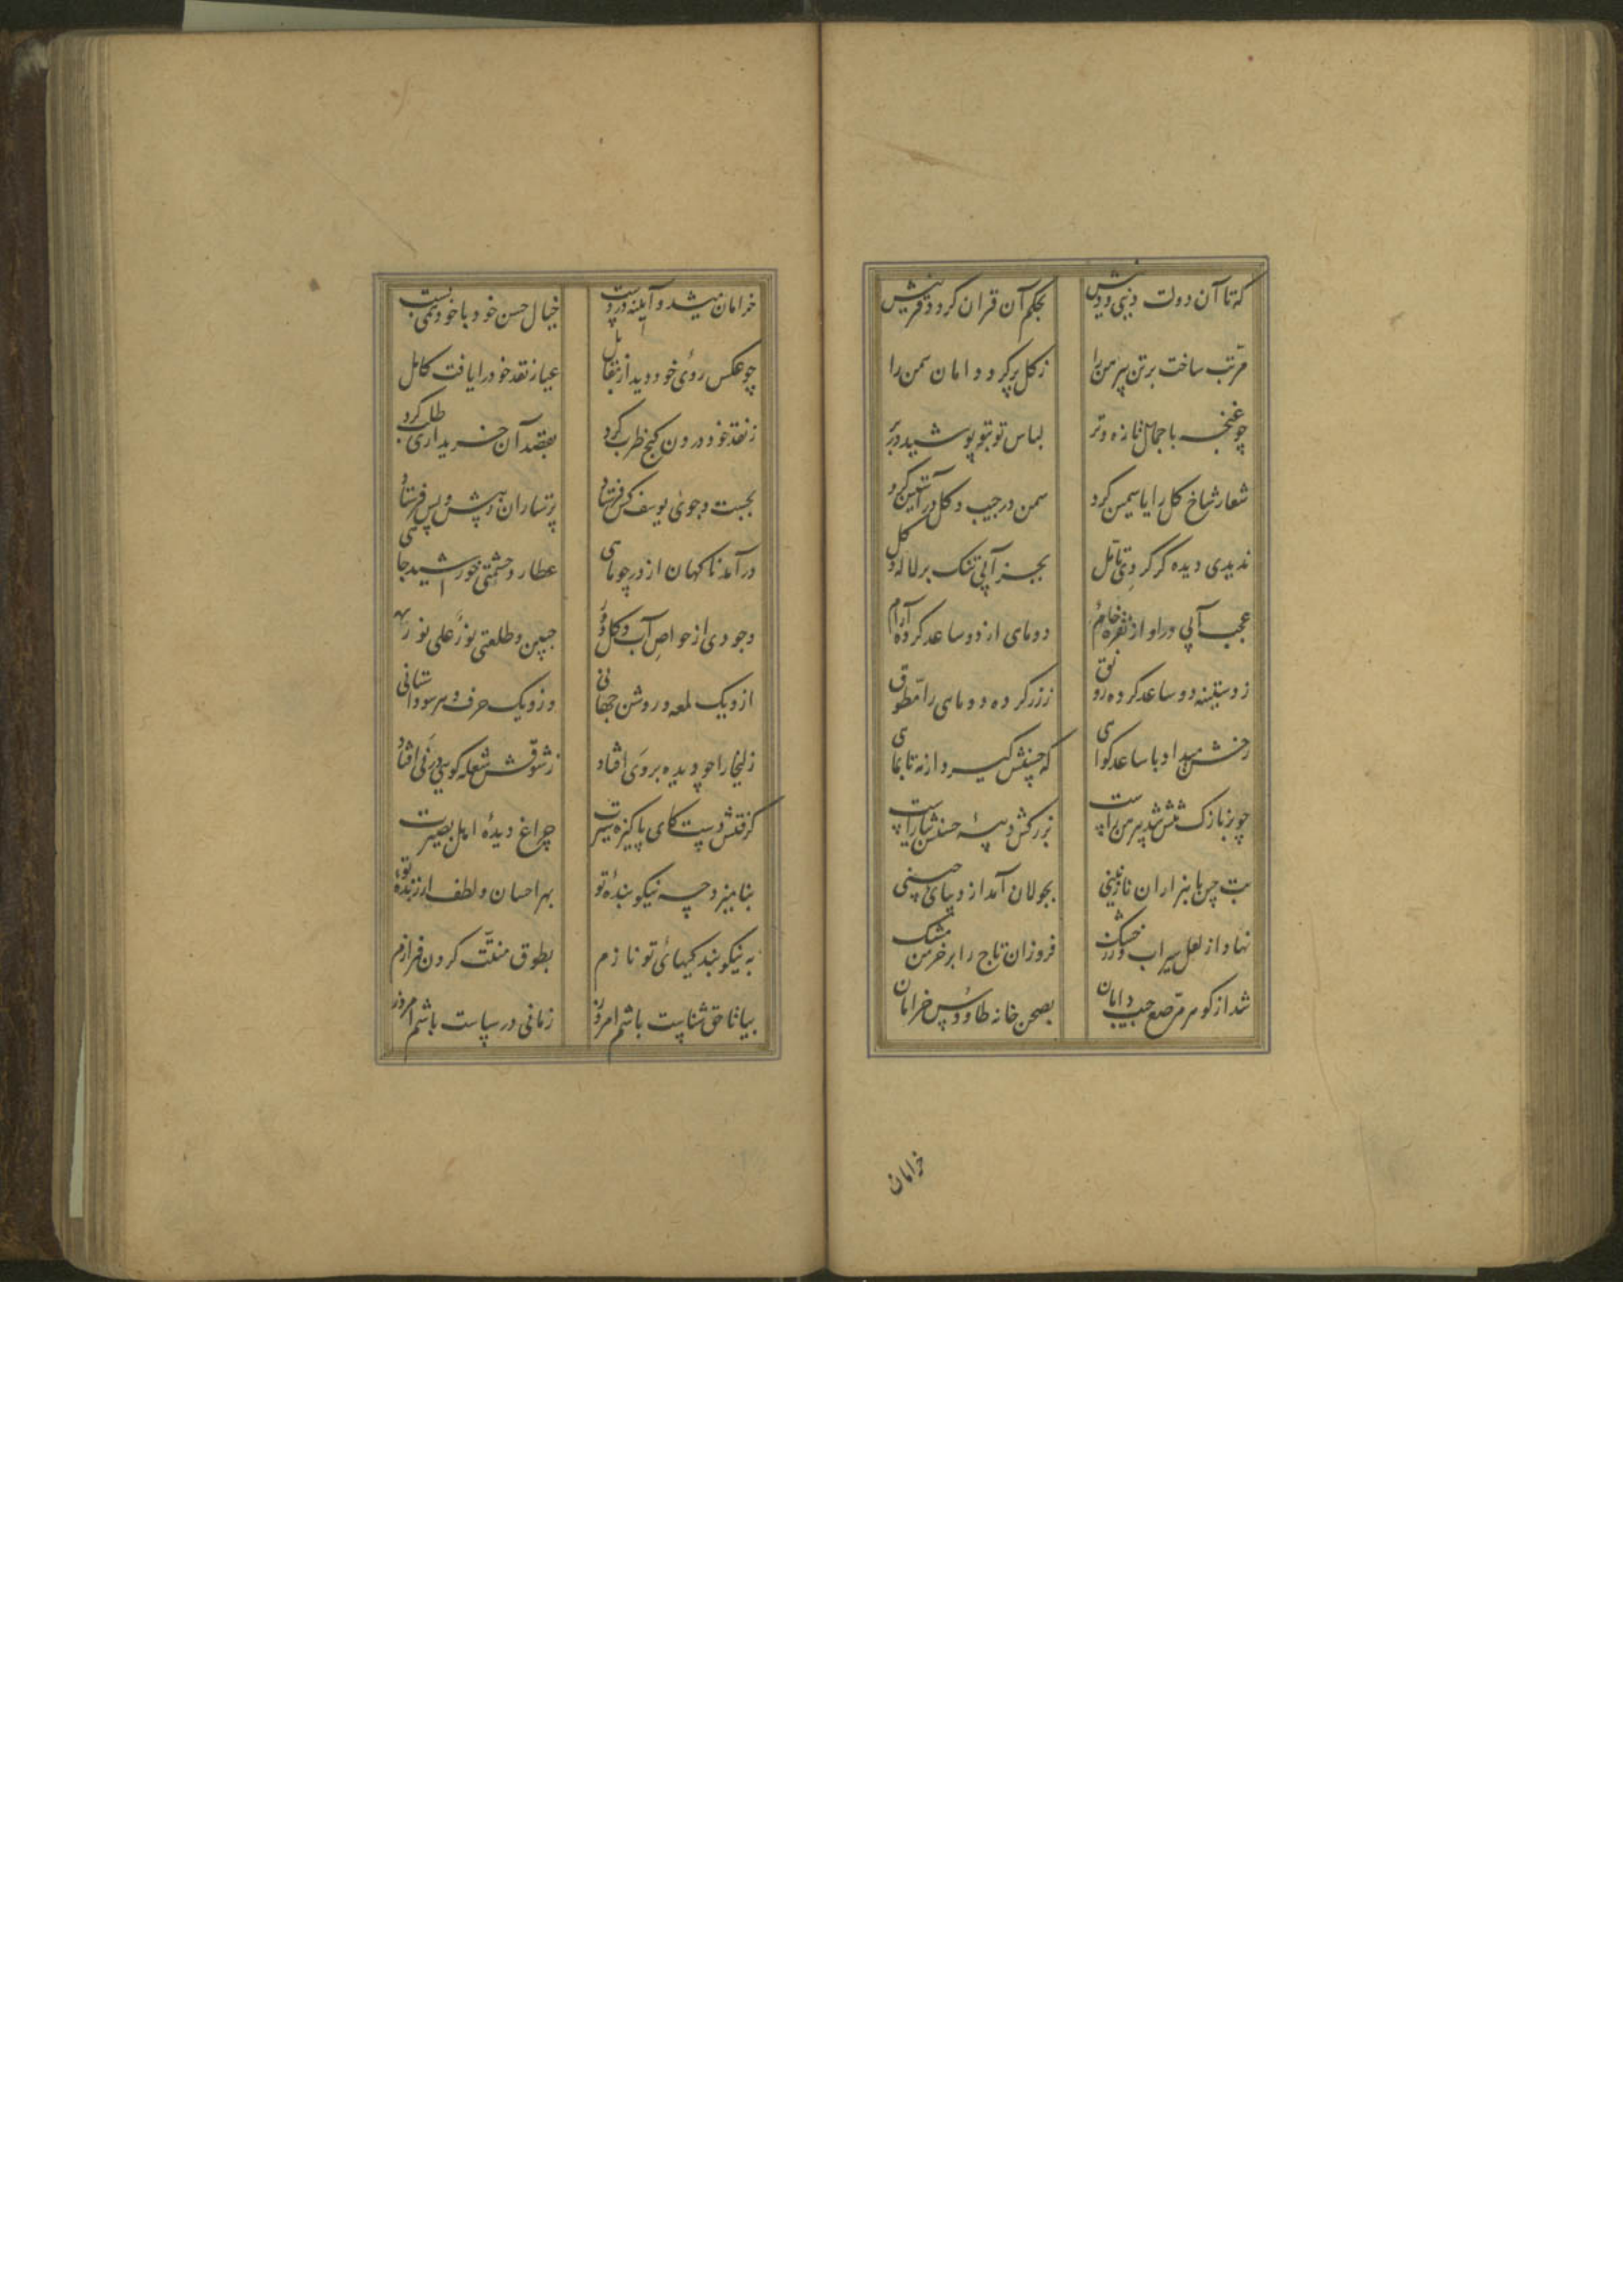 که تا آن دولت دنیی و دینش بحکم آن قران کردد قرینش
مرتّب ساخت بر تن پیرهن را ز کل پر کرد دامان سمن را
چو غنچه با جمال تازه و تر لباس تو بتو پوشید در بر
شعار شاخ کل را یاسمین کرد سمن در جیب و کل در آستین کرد
ندیدی دیده کر کردی تامّل بجز آبی تنک بر لاله و کل
عجب آبی در او از نقره خام دو ماهی از دو ساعد کرده آرام
ز دستینه دو ساعد کرده رونق ز زر کرده دو ماهی را مطوّق
رخش میداد با ساعد کواهی که حسنش کیرد از مه تا بماهی
چو بر نازک تنش شد پیرهن راست بزرکش دیبه حسنش بیاراست
بت چین با هزاران نازنینی بجولان آمد از دیبای چینی
نهاد از لعل سیراب و زر خشک فروزان تاج را بر خرمن مشک
شد از کوهر مرصّع جیب و دامان بصحن خانه طاووس خرامان
خرامان
خرامان میشد و آیینه در دست خیال حسن خود با خود همی بست
چو عکس روی خود دید از مقابل عیار نقد خود را یافت کامل
ز نقد خود درون کنج طرب کرد بقصد آن خریداری طلب کرد
بجست و جوی یوسف کس فرستاد پرستاران ز پیش و پس فرستاد
درآمد ناکهان از در چو ماهی عطارد حشمتی خورشید جاهی
وجودی از خواص آب و کل دور جبین و طلعتی نورٌ علی نور
ازو یک لمعه و روشن جهانی وزو یک حرف و هر سو داستانی
زلیخا را چو دیده بر وی افتاد ز شوقش شعله کویی در نی افتاد
کرفتش دست کای پاکیزه سیرت چراغ دیدهٔ اهل بصیرت
بنامیزد چه نیکو بندهٔ تو بهر احسان و لطف ارزندهٔ تو
به نیکو بندکیهای تو نازم بطوق منّتت کردن فرازم
بیا تا حق شناست باشم امروز زمانی در سپاست باشم امروز